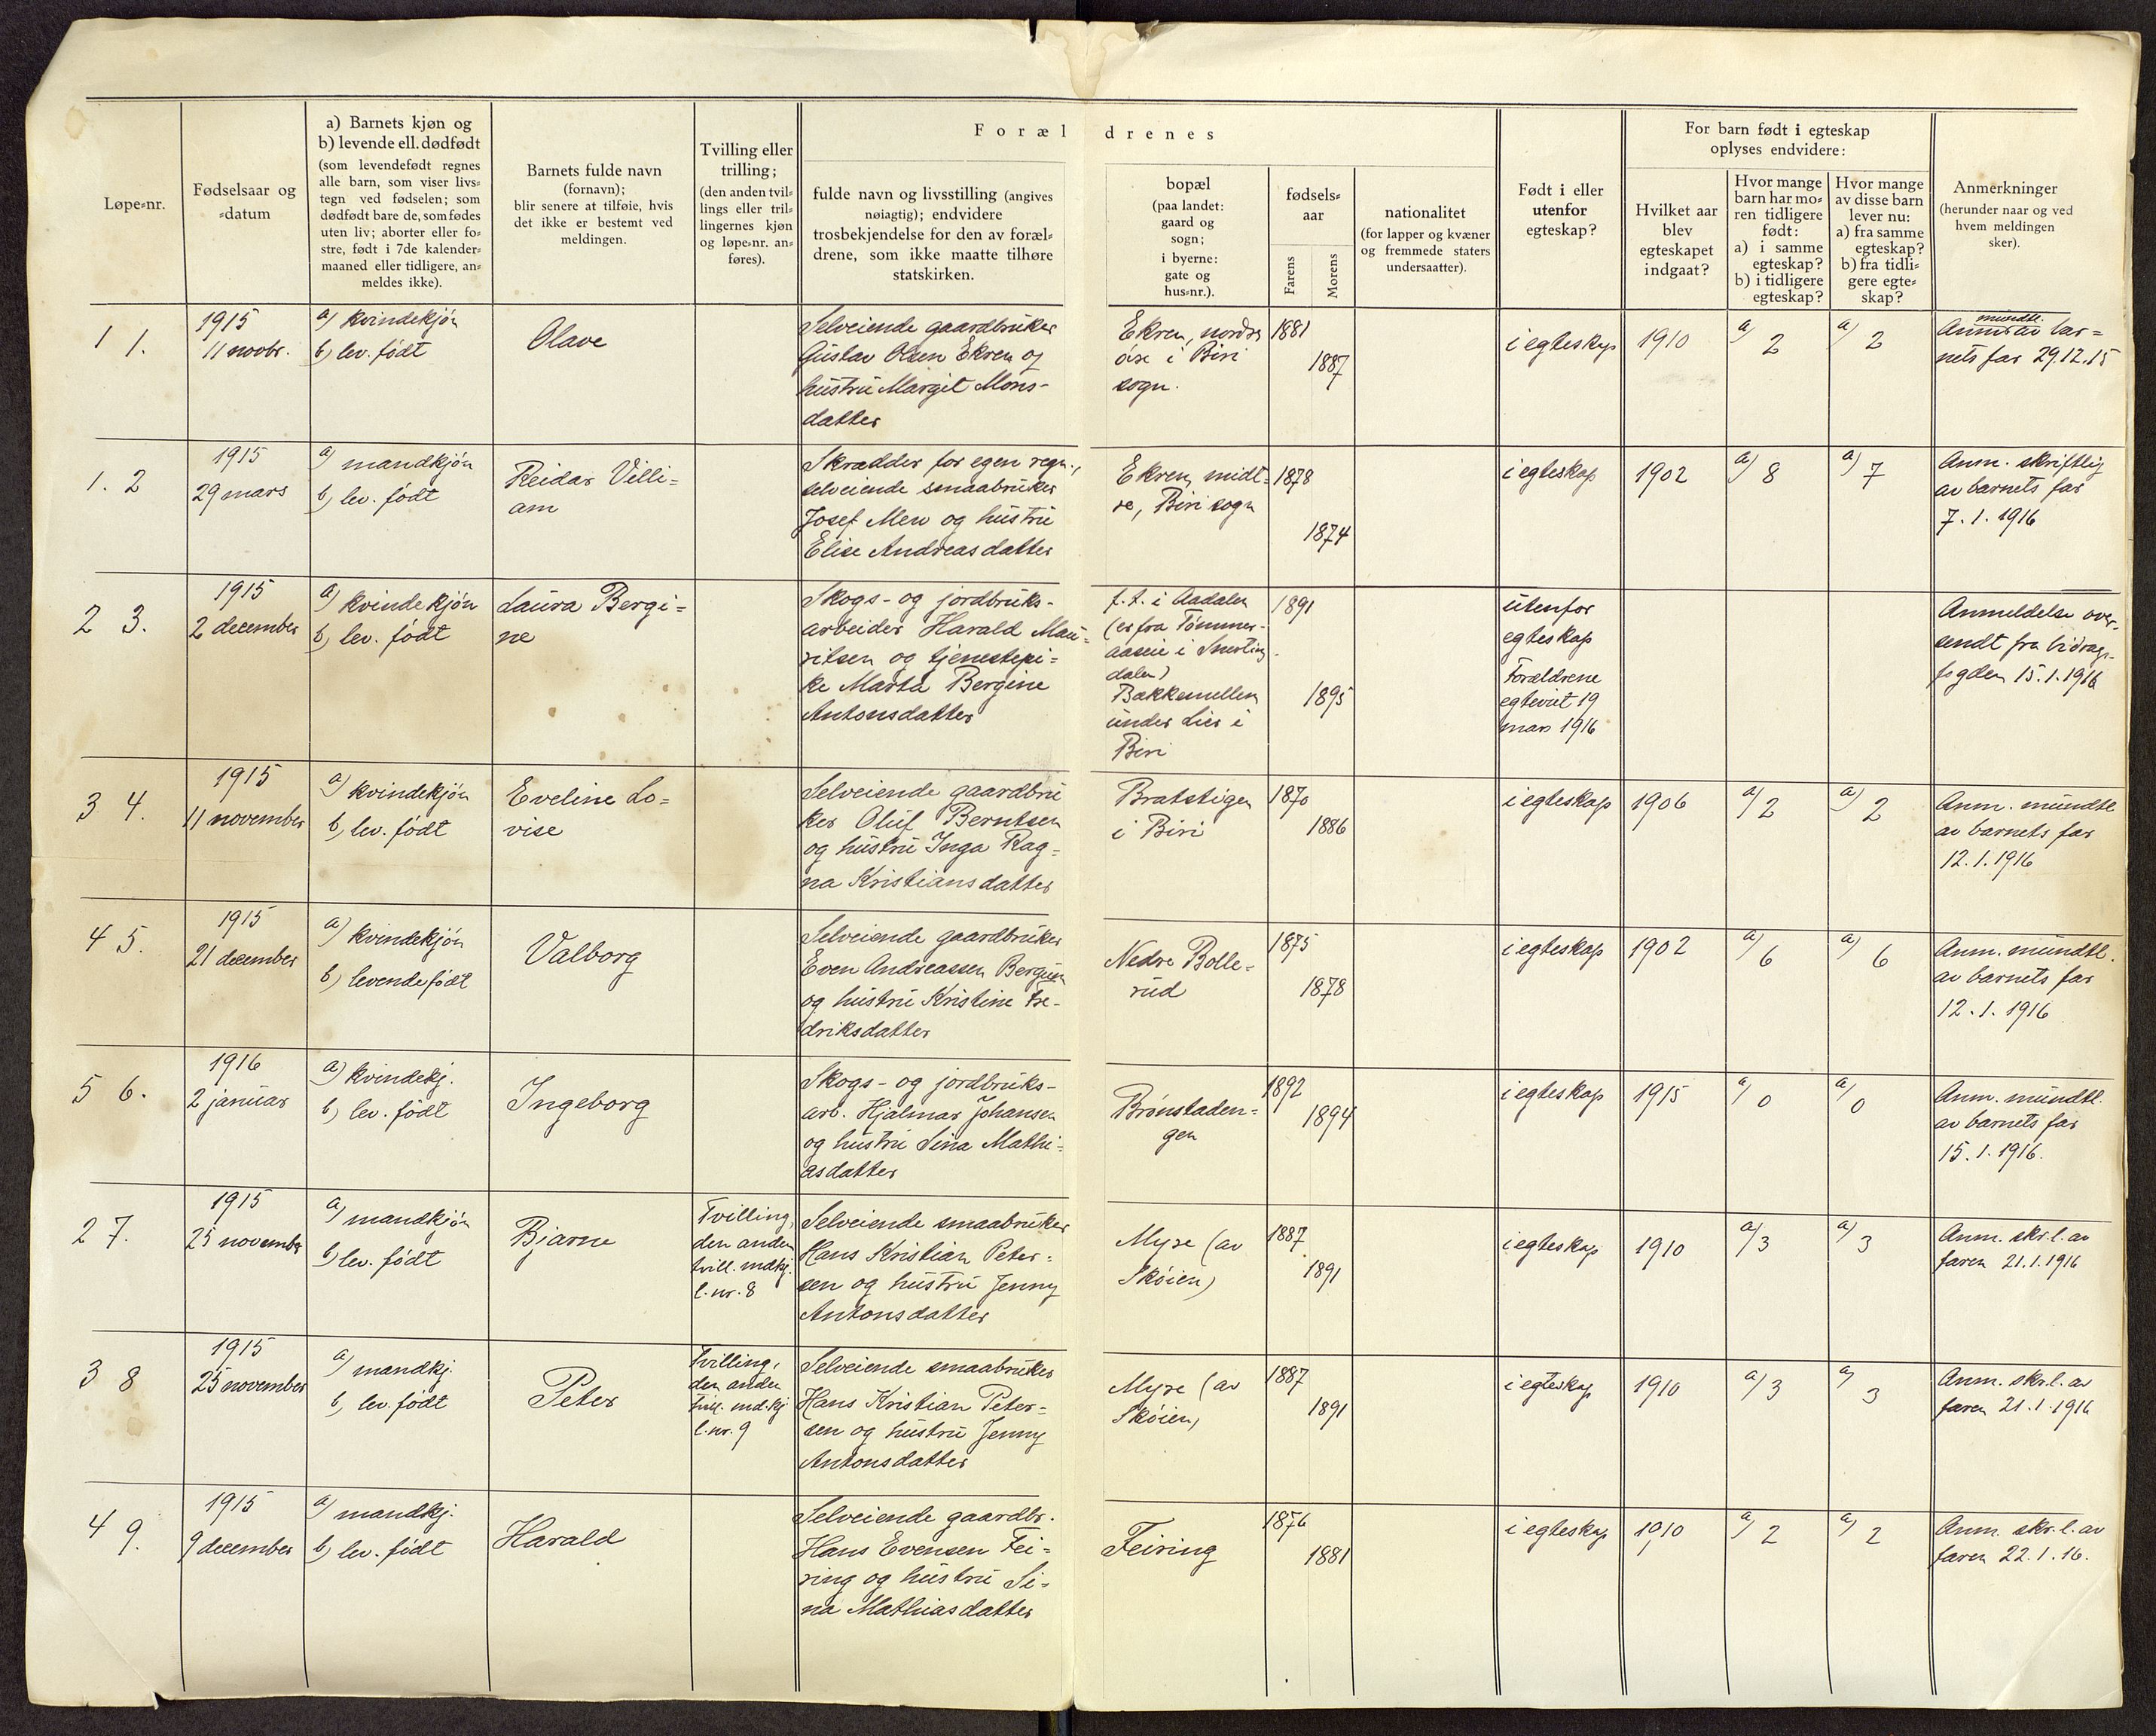 Foræl drenes
Løpe=nr.
Fødselsaar og
=datum
a) Barnets kjøn og
b) levende ell. dødfødt
(som levendefødt regnes
alle barn, som viser livs=
tegn ved fødselen; som
dødfødt bare de, som fødes
uten liv; aborter eller fo=
stre, født i 7de kalender=
maaned eller tidligere, an=
meldes ikke).
Barnets fulde navn
(fornavn);
blir senere at tilføie, hvis
det ikke er bestemt ved
meldingen.
Tvilling eller
trilling;
(den anden tvil=
lings eller tril=
lingernes kjøn
og løpe=nr. an=
føres).
fulde navn og livsstilling (angives
nøiagtig); endvidere
trosbekjendelse for den av foræl=
drene, som ikke maatte tilhøre
statskirken.
bopæl
(paa landet:
gaard og
sogn;
i byerne:
gate og
hus=nr.).
fødsels=
aar
Farens
Morens
nationalitet
(for lapper og kvæner
og fremmede staters
undersaatter).
Født i eller
utenfor
egteskap?
For barn født i egteskap
oplyses endvidere:
Hvilket aar
blev
egteskapet
indgaat?
Hvor mange
barn har mo=
ren tidligere
født:
a) i samme
egteskap?
b) i tidligere
egteskap?
Hvor mange
av disse barn
lever nu:
a) fra samme
egteskap?
b) fra tidli=
gere egte=
skap?
Anmerkninger
(herunder naar og ved
hvem meldingen
sker).
1 1.
1915
11 novbr.
a) kvindekjøn
b) lev. født
Olave
Selveiende gaardbruker
Gustav Olsen Ekren og
hustru Margit Mons-
datter
Ekren, nordre
øre i Biri
sogn.
1881
1887
i egteskap
1910
a) 2
a) 2
mundtl.
Anm. av bar=
nets far 29.12.15
1. 2
1915
29 mars
a) mandkjøn
b) lev. født
Reidar Villi=
am
Skrædder for egen regn.,
selveiende smaabruker
Josef Men og hustru
Elise Andreasdatter
Ekren, midt=
re, Biri sogn
1878
1874
i egteskap
1902
a) 8
a) 7
Anm. skriftlig
av barnets far
7. 1. 1916
2 3.
1915
2 december
a) kvindekjøn
b) lev. født
Laura Bergi=
ne
Skogs- og jordbruks-
arbeider Harald Mau=
ritsen og tjenestepi=
ke Marta Bergine
Antonsdatter
f. t. i Aadalen
(er fra Tømmer-
aaseie i Snerting-
dalen)
Bakkemellen
under Lier i
Biri
1891
1895
utenfor
egteskap
Forældrene
egteviet 19
mars 1916
Anmeldelse over-
sendt fra bidrags-
fogden 15.1.1916
3 4.
1915
11 november
a) kvindekjøn
b) lev. født
Eveline Lo=
vise
Selveiende gaardbru
ker Oluf Berntsen
og hustru Inga Rag=
na Kristiansdatter
Bratstigen
i Biri
1870
1886
i egteskap
1906
a) 2
a) 2
Anm. mundtl
av barnets far
12. 1. 1916
4 5.
1915
21 december
a) kvindekjøn
b) levende født
Valborg
Selveiende gaardbruker
Even Andreassen Bergum
og hustru Kristine Fre-
driksdatter
Nedre Bolle=
rud
1875
1878
i egteskap
1902
a) 6
a) 6
Anm. mundtl.
av barnets far
12. 1. 1916
5 6.
1916
2 januar
a) kvindekj.
b) lev. født
Ingeborg
Skogs- og jordbruks-
arb. Hjalmar Johansen
og hustru Lina Mathi=
asdatter
Brønstaden=
gen
1892
1894
i egteskap
1915
a) 0
a) 0
Anm. mundtl.
av barnets far
15. 1. 1916.
2 7.
1915
25 november
a) mandkjøn
b) lev. født
Bjarne
Tvilling,
den anden
tvill. mdkj.
l. nr. 8
Selveiende smaabruker
Hans Kristian Peter=
sen og hustru Jenny
Antonsdatter
Myre (av
Skøien)
1887
1891
i egteskap
1910
a) 3
a) 3
Anm. skr.l. av
faren 21.1.1916
3 8
1915
25 november
a) mandkj.
b) lev. født
Peter
Tvilling,
den anden
tvill. mdkj
l. nr. 9
Selveiende smaabruker
Hans Kristian Peter=
sen og hustru Jenny
Antonsdatter
Myre (av
Skøien)
1887
1891
i egteskap
1910
a) 3
a) 3
Anm. skr.l. av
faren 21. 1. 1916
4 9.
1915
9 december
a) mandkj.
b) lev. født
Harald
Selveiende gaardbr.
Hans Evensen Fei=
ring og hustru Si=
na Mathiasdatter
Feiring
1876
1881
i egteskap
1910
a) 2
a) 2
Anm. skr.l. av
faren 22. 1. 16.